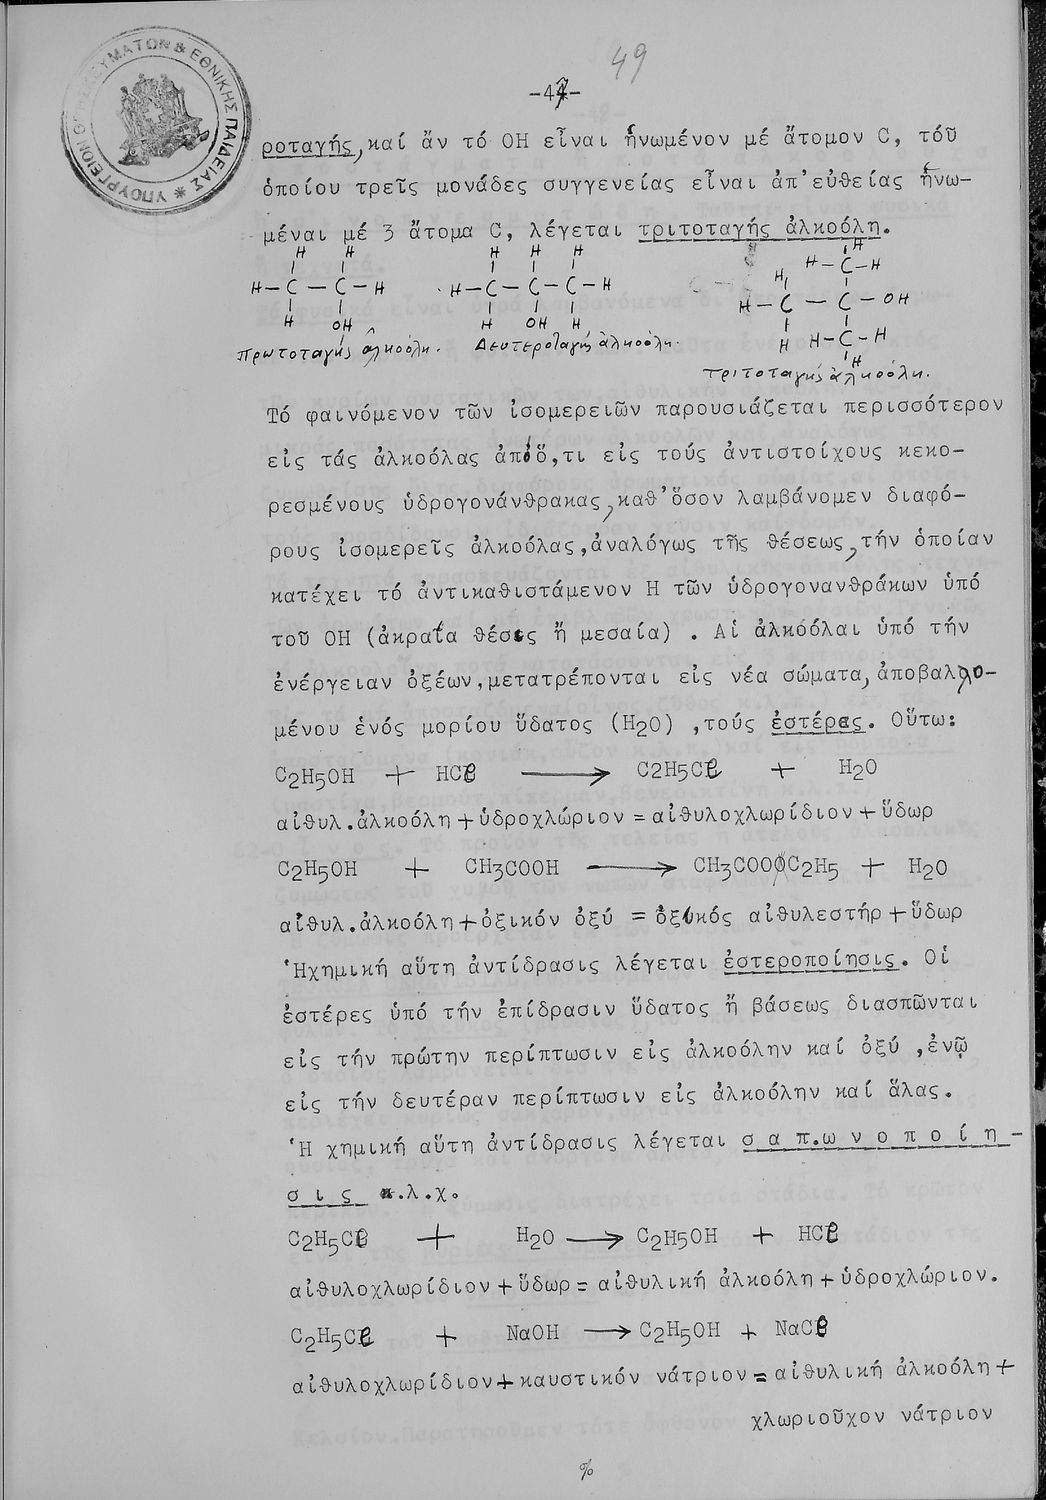 49
-47-
ΥΠΟΥΡΓΕΙΟΝ ΘΡΗΣΚΕΥΜΑΤΩΝ & ΕΘΝΙΚΗΣ ΠΑΙΔΕΙΑΣ
ροταγής, καί ἄν τό ΟΗ εἶναι ἡνωμένον μέ ἄτομον C, τόῦ
ὁποίου τρεῖς μονάδες συγγενείας εἶναι ἀπ'εὐθείας ἡνω-
μέναι μέ 3 ἄτομα C, λέγεται τριτοταγής ἀλκοόλη.
H H H H H H
H-C-C-H H-C-C-C-H H-C-H
H OH H OH H H-C-C-OH
H H-C-H
H
Πρωτοταγής ἀλκοόλη. Δευτεροταγής ἀλκοόλη.
τριτοταγής ἀλκοόλη.
Τό φαινόμενον τῶν ἰσομερειῶν παρουσιάζεται περισσότερον
εἰς τάς ἀλκοόλας ἀπ'ὅ,τι εἰς τούς ἀντιστοίχους κεκο-
ρεσμένους ὑδρογονάνθρακας, καθ'ὅσον λαμβάνομεν διαφό-
ρους ἰσομερεῖς ἀλκοόλας, ἀναλόγως τῆς θέσεως, τήν ὁποίαν
κατέχει τό ἀντικαθιστάμενον Η τῶν ὑδρογονανθράκων ὑπό
τοῦ ΟΗ (ἀκραία θέσις ἤ μεσαία) . Αἱ ἀλκοόλαι ὑπό τήν
ἐνέργειαν ὀξέων, μετατρέπονται εἰς νέα σώματα, ἀποβαλλο-
μένου ἑνός μορίου ὕδατος (H2O) ,τούς ἐστέρας. Οὕτω:
C2H5OH + HCl ⟶ C2H5Cl + H2O
αἰθυλ.ἀλκοόλη + ὑδροχλώριον = αἰθυλοχλωρίδιον + ὕδωρ
C2H5OH + CH3COOH ⟶ CH3COOC2H5 + H2O
αἰθυλ.ἀλκοόλη + ὀξικόν ὀξύ = ὀξικός αἰθυλεστήρ + ὕδωρ
Ἡχημική αὕτη ἀντίδρασις λέγεται ἐστεροποίησις. Οἱ
ἐστέρες ὑπό τήν ἐπίδρασιν ὕδατος ἤ βάσεως διασπῶνται
εἰς τήν πρώτην περίπτωσιν εἰς ἀλκοόλην καί ὀξύ ,ἐνῷ
εἰς τήν δευτέραν περίπτωσιν εἰς ἀλκοόλην καί ἅλας.
Ἡ χημική αὕτη ἀντίδρασις λέγεται σ α π.ω ν ο π ο ί η -
σ ι ς π.λ.χ.
C2H5Cl + H2O ⟶ C2H5OH + HCl
αἰθυλοχλωρίδιον + ὕδωρ = αἰθυλική ἀλκοόλη + ὑδροχλώριον.
C2H5Cl + NaOH ⟶ C2H5OH + NaCl
αἰθυλοχλωρίδιον + καυστικόν νάτριον = αἰθυλική ἀλκοόλη +
χλωριοῦχον νάτριον
%